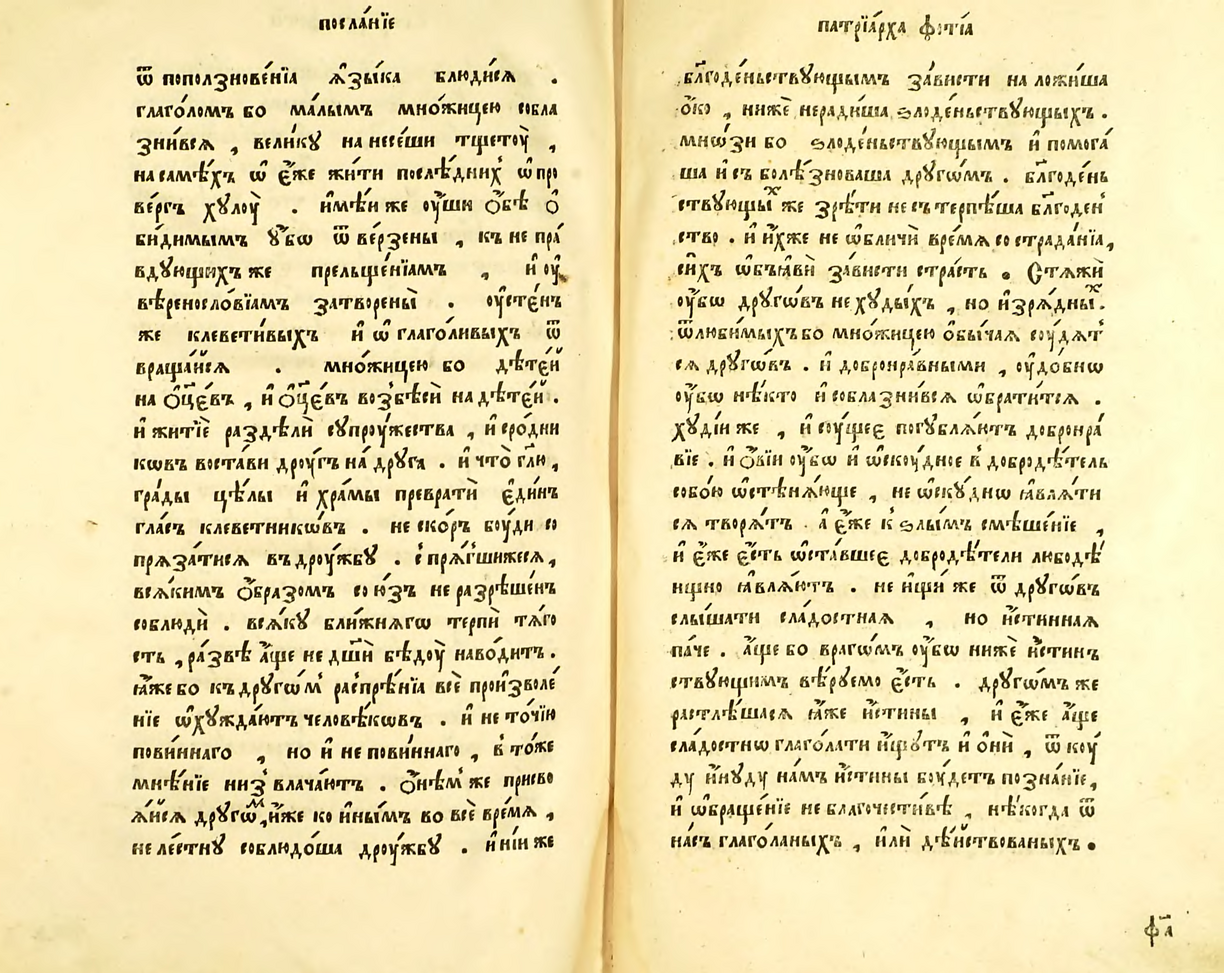 посла́нїе
ѿ поползнове́нїа ѧ҆зы́ка блюди́сѧ .
глаго́ломъ бо ма́лымъ мно́жицею собла
зни́всѧ , вели́кꙋ нанесе́ши тщетоу̀ ,
на самѣ́хъ ѡ҆ є҆́же жи́ти послѣ́дних̾ ѡ҆про
ве́ргъ хꙋлоу̀ . и҆мѣ́и же оу҆́ши ѻ҆́бѣ ѻ҆
би́димымъ ᲂу҆́бѡ ѿве́рзены , къ не пра́
вдꙋющихъ же прельще́нїамъ , и҆ оу҆
вѣ́ренословїамъ затворены̀ . оу҆сте́нъ
же клевети́выхъ и҆ ѡ҆глаго́ливыхъ ѿ
враща́йсѧ . мно́жицею бо дѣ́тєй
на ѻ҆ц҃є́въ , и҆ ѻ҆ц҃є́въ возбѣсѝ на дѣ́тєй .
и҆ житїѐ раздѣлѝ сꙋпроу́жества , и҆ сро́дни
кѡвъ воста́ви дроу́гъ на́ дрꙋга . и҆ что̀ гл҃ю ,
гра́ды цѣ́лы и҆ хра́мы преврати̇̀ є҆ди́нъ
гла́съ клеветникѡ́въ . не ско́ръ боу́ди со
прѧза́тисѧ въ дроу́жбꙋ . с̾прѧ́гшижесѧ ,
всѧ́кимъ ѻ҆́бразомъ сою́зъ не разрѣше́нъ
соблюдѝ . всѧ́кꙋ бли́жнѧгѡ терпѝ тѧ́го
сть , ра́звѣ а҆́ще не дш҃ѝ бѣдоу̀ наво́дитъ .
ꙗ҆́же бо къ дрꙋгѡ́м̾ распрѣ́нїа всѐ произволе́
нїе ѡ҆хꙋжда́ютъ человѣ́кѡвъ . и҆ не то́чїю
пови́ннаго , но и҆ не пови́ннаго , в̾ то́же
мнѣ́нїе низ̾влача́ютъ . ѻ҆́нѣм̾ же присво
ѧ́йсѧ дрꙋгѡ́м , и҆́же ко и҆ны́мъ во всѐ вре́мѧ ,
не ле́стнꙋ соблюдо́ша дроу́жбꙋ . и҆ ні́и же
патрїа́рха фѡ́тїа
бл҃годе́ньствꙋющымъ за́висти наложи́ша
ѻ҆́ко , нижѐ неради́ша ѕлоде́ньствꙋющыхъ .
мнѡ́зи бо ѕлоде́ньствꙋющымъ и҆ помога́
ша и҆ съболѣ́зноваша дрꙋгѡ́мъ . бл҃годе́нь
ствꙋющыⷯ же зрѣ́ти не сътерпѣ́ша бл҃годен̾
ство . и҆ и҆́хже не ѡ҆бличѝ вре́мѧ сострада́нїа ,
си́хъ ѡ҆бъꙗвѝ за́висти стра́сть . Стѧжѝ
оу҆́бѡ дрꙋгѡ́въ не хꙋды́хъ , но и҆зрѧ́дныⷯ .
ѿ люби́мыхъ бо мно́жицею ѻ҆бы́чаѧ соу́дѧт̾
сѧ дрꙋгѡ́въ . и҆ добронра́вными , оу҆до́бнѡ
оу҆́бѡ нѣ́кто и҆ соблазни́всѧ ѡ҆брати́тсѧ .
хꙋді́и же , и҆ соу́щєє погꙋблѧ́ютъ добронра́
вїе . и҆ ѻ҆ві́и оу҆́бѡ и҆ ѡ҆скоу́дное в̾ добродѣ́тель
собо́ю ѡ҆стѣнѧ́юще , не ѡ҆скꙋднѡ ꙗ҆влѧ́ти
сѧ творѧ́тъ . а҆ є҆́же к̾ ѕлы́мъ смѣше́нїе ,
и҆ є҆́же є҆́сть ѡ҆ста́вшеє добродѣ́тели любодѣ́
ищно ꙗ҆влѧ́ютъ . не и҆щѝ же ѿ дрꙋгѡ́въ
слы́шати сла́достнаѧ , но и҆́стиннаѧ
па́че . а҆́ще бо врагѡ́мъ оу҆́бѡ нижѐ и҆́стин
ствꙋющимъ вѣ́рꙋемо є҆́сть . дрꙋгѡ́мъ же
растлѣ́шасѧ ꙗ҆́же и҆́стины , и҆ є҆́же а҆́ще
сла́достнѡ глаго́лати и҆́щꙋтъ и҆ ѻ҆ни̇̀ , ѿ коу́
дꙋ и҆нꙋдꙋ на́мъ и҆́стины боу́детъ позна́нїе ,
и҆ ѡ҆браще́нїе не благочести́вѣ , нѣ́когда ѿ
на́съ глаго́ланыхъ , и҆лѝ дѣ́йствованыхъ .
ф҃а